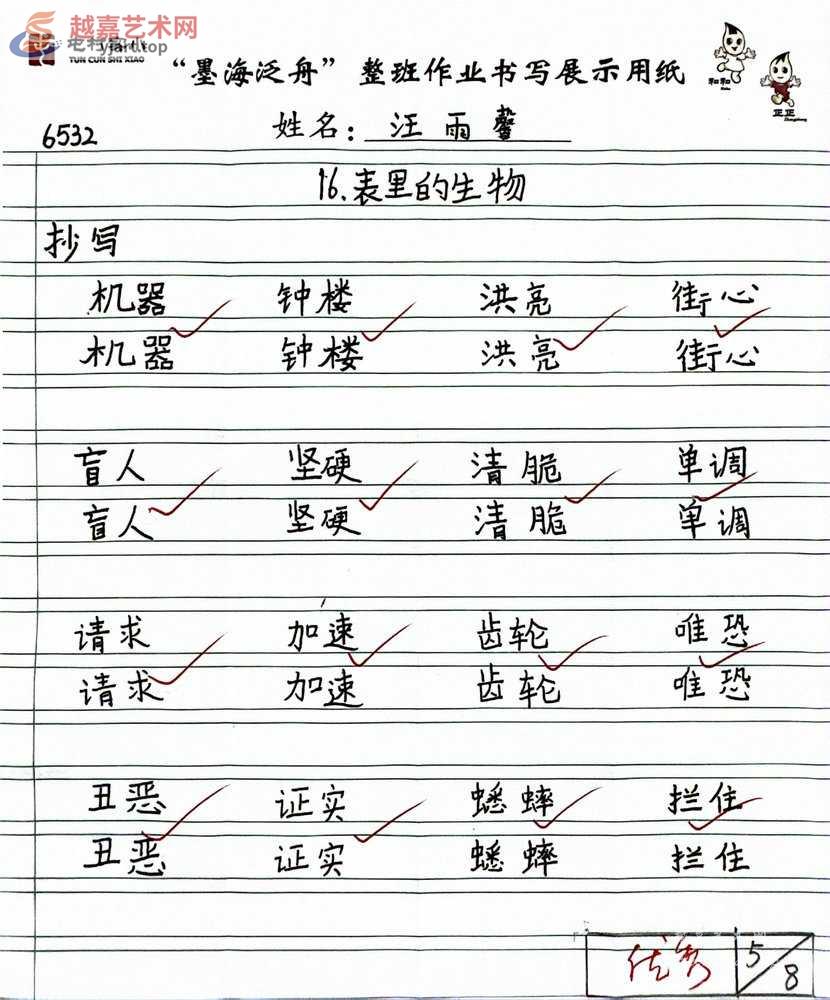 越嘉艺术网
yjart.top
TUN CUN SHI XIAO
“墨海泛舟”整班作业书写展示用纸
和和
正正
6532 姓名：汪雨馨
16.表里的生物
抄写
机器 钟楼 洪亮 街心
机器 钟楼 洪亮 街心
盲人 坚硬 清脆 单调
盲人 坚硬 清脆 单调
请求 加速 齿轮 唯恐
请求 加速 齿轮 唯恐
丑恶 证实 蟋蟀 拦住
丑恶 证实 蟋蟀 拦住
优秀 5/8